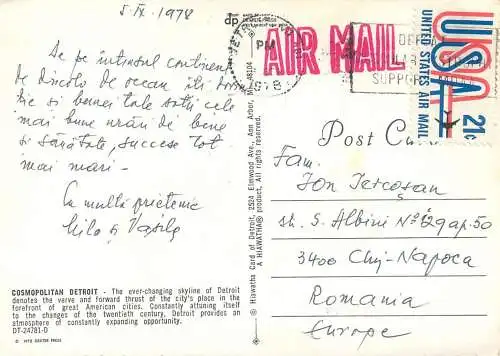 5.IX.1978
De pe întinsul continent
de dincolo de ocean iți
și bunei tale soții cele
mai bune urări de bine
și sănătate, succese tot
mai mari -
Cu multă prietenie
și Vasile
COSMOPOLITAN DETROIT - The ever-changing skyline of Detroit
denotes the verve and forward thrust of the city's place in the
forefront of great American cities. Constantly attuning itself
to the changes of the twentieth century, Detroit provides an
atmosphere of constantly expanding opportunity.
DT-24781-D
DEXTER PRESS
dp
© Hiawatha Card of Detroit, 2524 Elmwood Ave., Ann Arbor, MI. 48104
A HIAWATHA® product, All rights reserved.
PM
1978
AIR MAIL
SUPPORT
USA
21c
UNITED STATES AIR MAIL
Post Card
Fam.
Ion Tercoșan
str. S. Albini Nº 12 ap. 50
3400 Cluj-Napoca
Romania
Europe